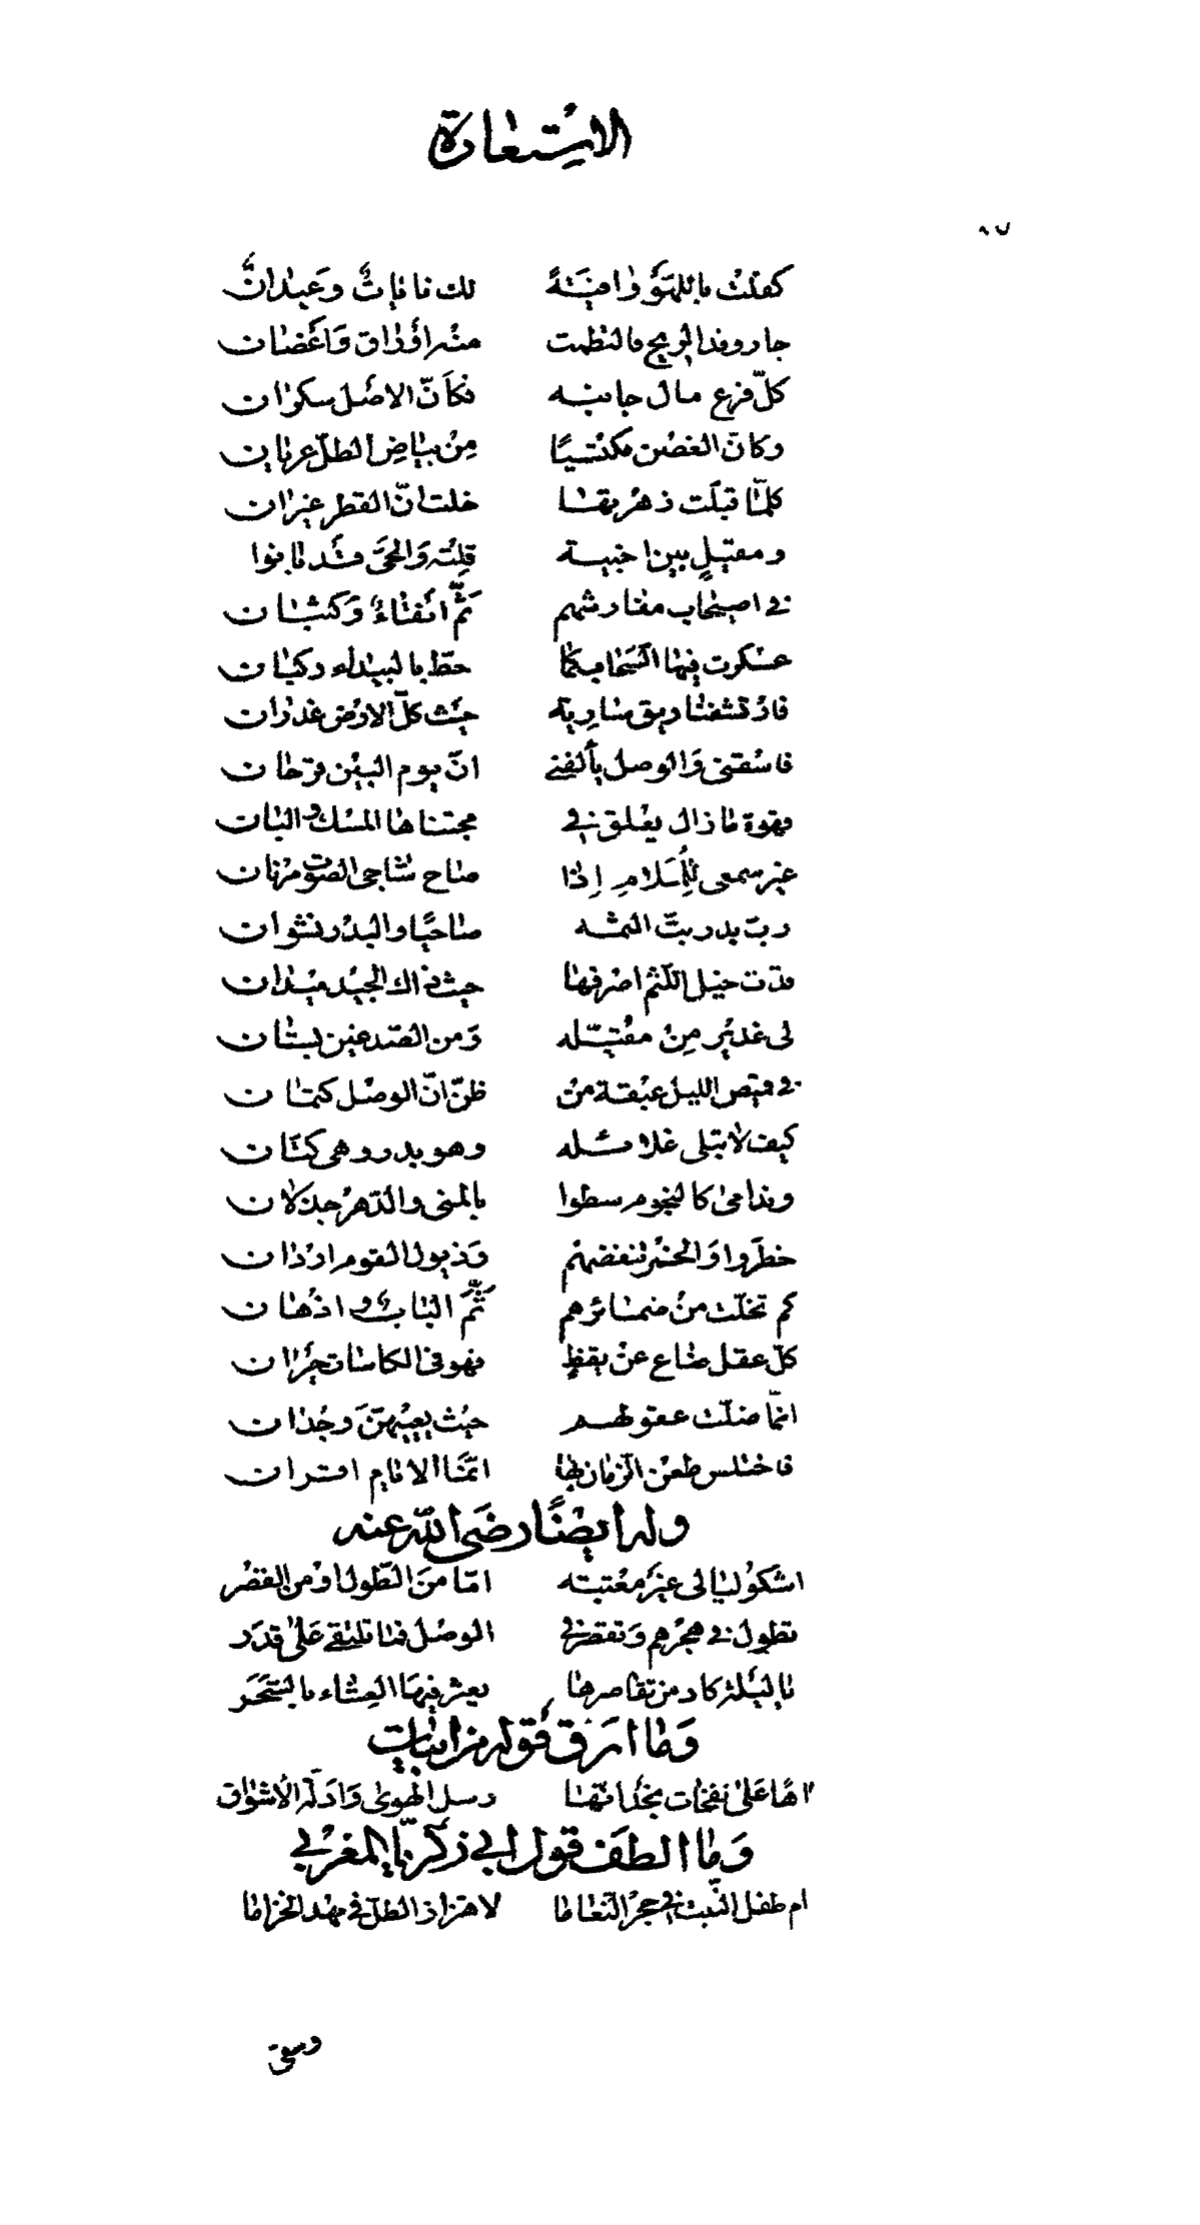 الاستعارة
٩٧
كفلت باللهو وافية لك نايات وعيدان
جاد وفد الريح فالتطمت منه اوراق واغصان
كلّ فرع مال جانبه فكأنّ الاصل سكران
وكأنّ الغصن مكتسيًا من بياض الطلّ عريان
كلّما قبلت زهرتها خلت انّ القطر غيران
ومقيلٍ بين اخبية قلته والحيّ قد بانوا
في اصيحاب مفارشهم ثمّ انقاء وكثبان
عسكرت فيها السّحاب كما حطّ بالبيداء ركبان
فارتشفنا ريق سارية حيث كلّ الارض غدران
فاسقني والوصل يألفني انّ يوم البين قرحان
قهوة ما زال يعلق في مجتناها المسك والبان
غير سمعي للملام إذا صاح شاجي الصوت مرنان
ربّ بدر بتّ الثمه صاحيًا والبدر نشوان
قدت خيل اللّثم اصرفها حيث ذاك الجيد ميدان
لي غدير من مقبّله ومن الصّدغين بستان
في قميص الليل عبقة من ظنّ انّ الوصل كتمان
كيف لا تبلى غلائله وهو بدر وهي كتّان
وندامى كالنجوم سطوا بالمنى والدّهر جذلان
خطروا والخمر تنفضهم وذيول القوم اردان
كم تخلّت من ضمائرهم ثمّ الباب واذهان
كلّ عقل ضاع عن يقظٍ فهو في الكاسات حيران
انّما ضلّت عقولهم حيث يعييهنّ وجدان
فاختلس طعن الزمان بها انّما الايام اقران
وله ايضًا رضي الله عنه
اشكو ليالي غير معتبته امّا من الطّول او من القصر
تطول في هجرهم وتقصر في الوصل فما تلتقي على قدر
يا ليلة كاد من تقاصرها يعثر فيها العشاء بالسّحر
وما ارق قوله من ابيات
اها على نفحات نجد انها رسل الهوى وادلّة الاشواق
وما الطف قول ابي زكريّا المغربي
ام طفل النّبت في حجر النعامى لاهتزاز الطلّ في مهد الخزامى
وسقى